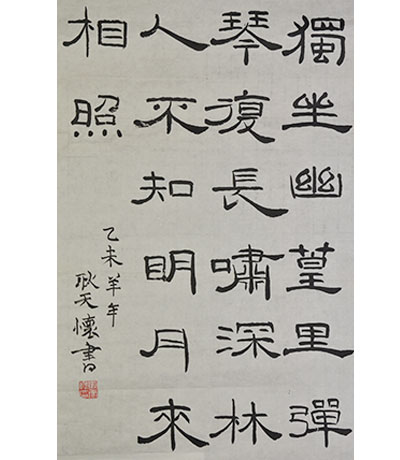 獨坐幽篁里彈
琴復長嘯深林
人不知明月來
相照
乙未羊年
耿天懷書